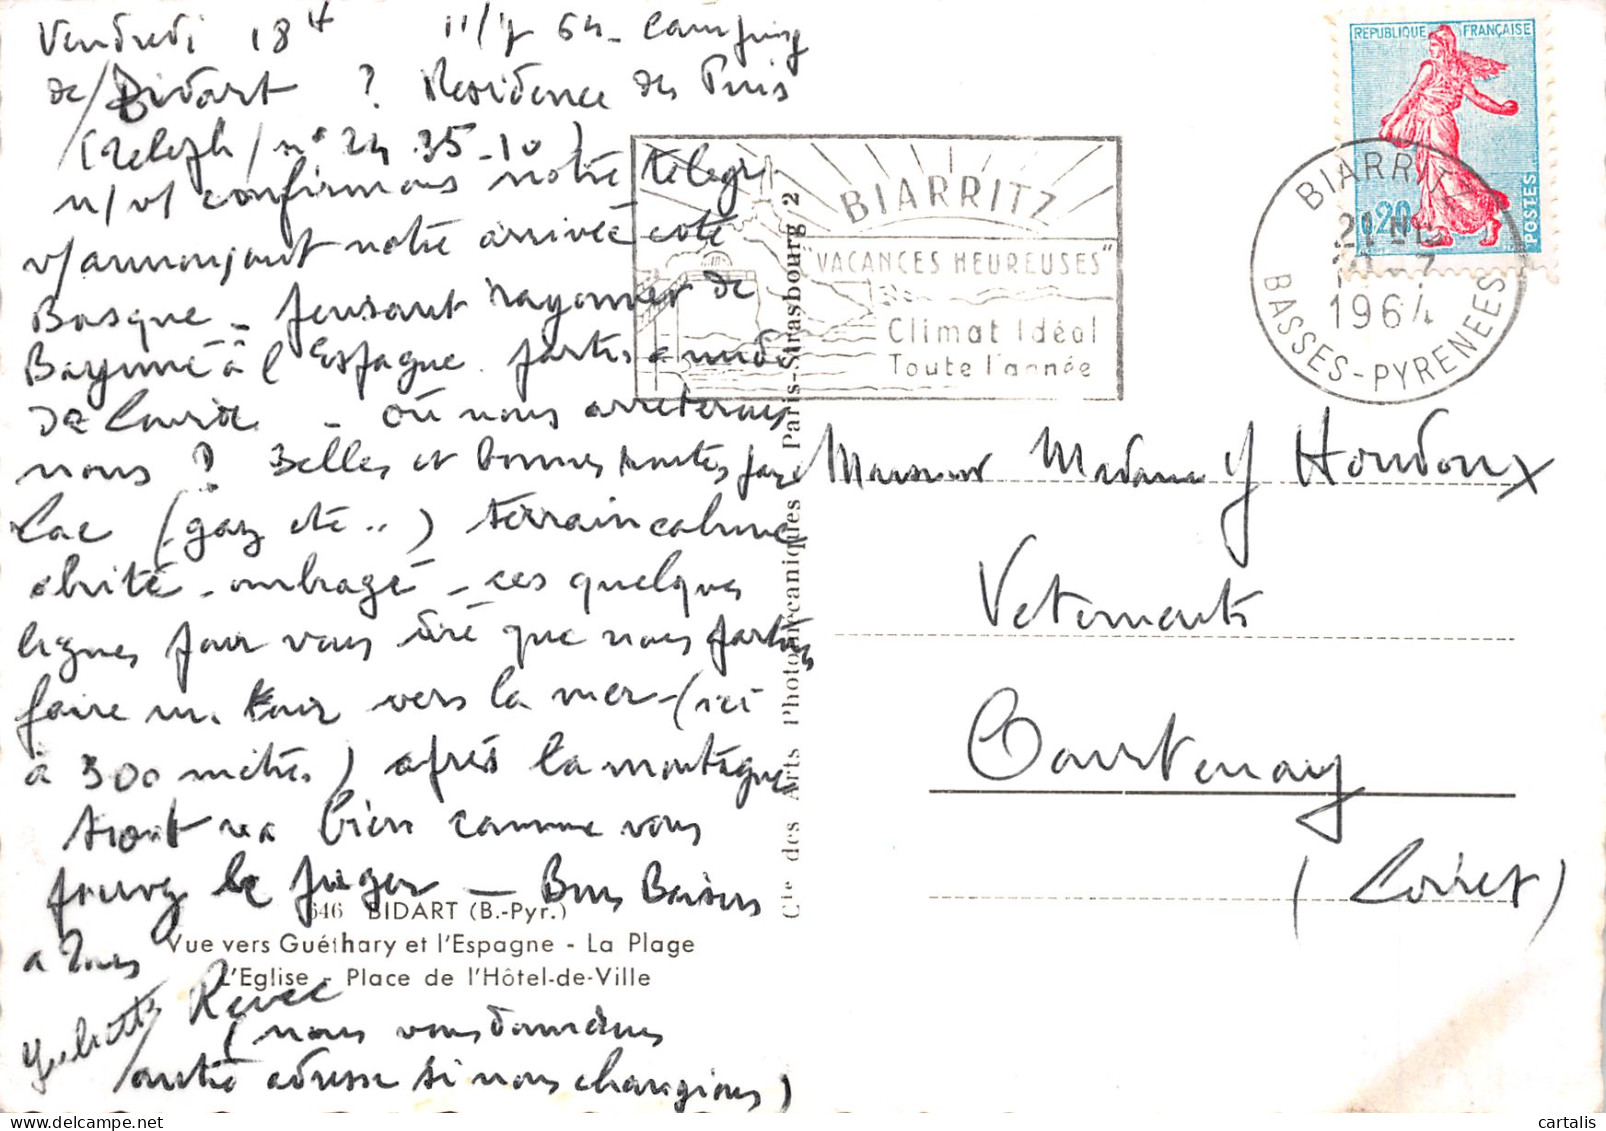 Vendredi 18H 11/7 64 - Camping
de Bidart ? Residence des Pins
(teleph/n° 24 35-10)
n/v/ confirmons notre telegr.
v/annonçant notre arrivée cote
Basque - pensant rayonner de
Bayonne à l'Espagne. partis a midi
de - où nous arreterons
nous ? Belles et bonnes routes
Lac (gaz etc ..) terrain calme
abrité - ombragé - ces quelques
lignes pour vous dire que nous partons
faire un tour vers la mer - (ici
à 300 mètres) après la montagne
tout va bien comme vous
pouvez le juger - Bons Baisers
a Tous
Juliette René
(nous vous donnerons
autre adresse si nous changions)
646 BIDART (B.-Pyr.)
Vue vers Guéthary et l'Espagne - La Plage
L'Eglise - Place de l'Hôtel-de-Ville
Cte des Arts Photomécaniques Paris-Strasbourg 2
BIARRITZ
"VACANCES HEUREUSES"
Climat Idéal
Toute l'année
REPUBLIQUE FRANÇAISE
0,20
POSTES
BIARRITZ
21 H
7
1964
BASSES-PYRENEES
Monsieur Madame Y Houdoux
Vetements
Courtenay
(Loiret)
cartalis delcampe.net